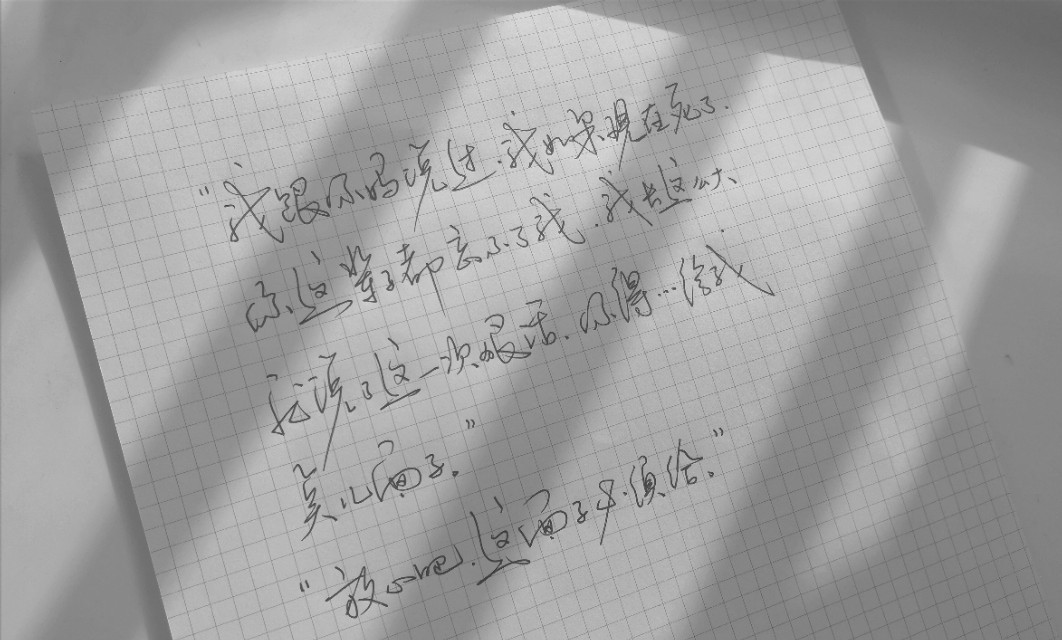 “我跟你妈说过.我如果現在死了.
你这辈子都忘不了我.我长这么大、
就说了这一次狠话.你得…给我
点儿面子.”
“放心吧.这面子必须给.”